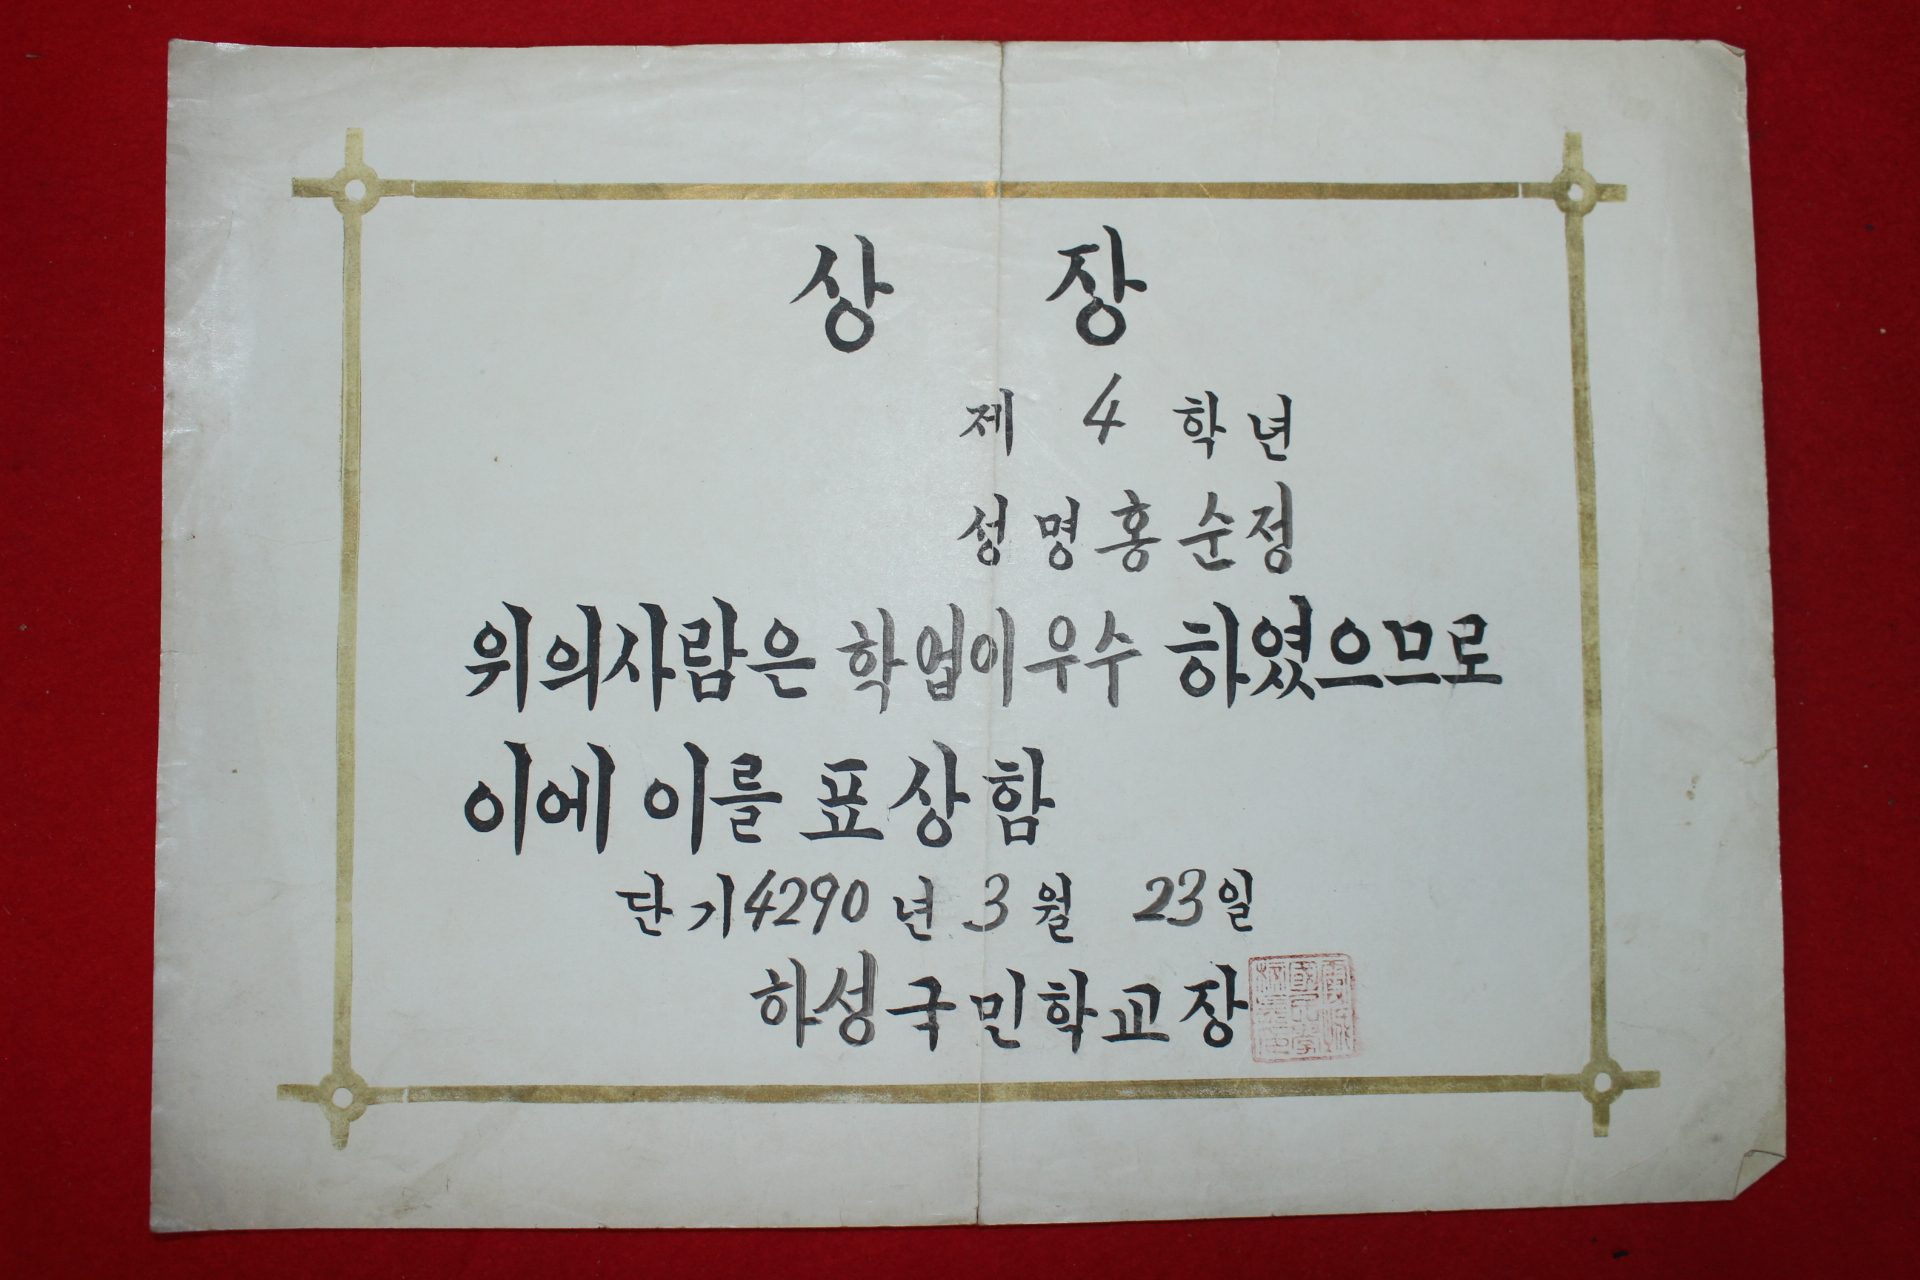 상 장
제 4 학년
성명 홍순정
위의 사람은 학업이 우수 하였으므로
이에 이를 표상함
단기 4290 년 3 월 23 일
하성국민학교장